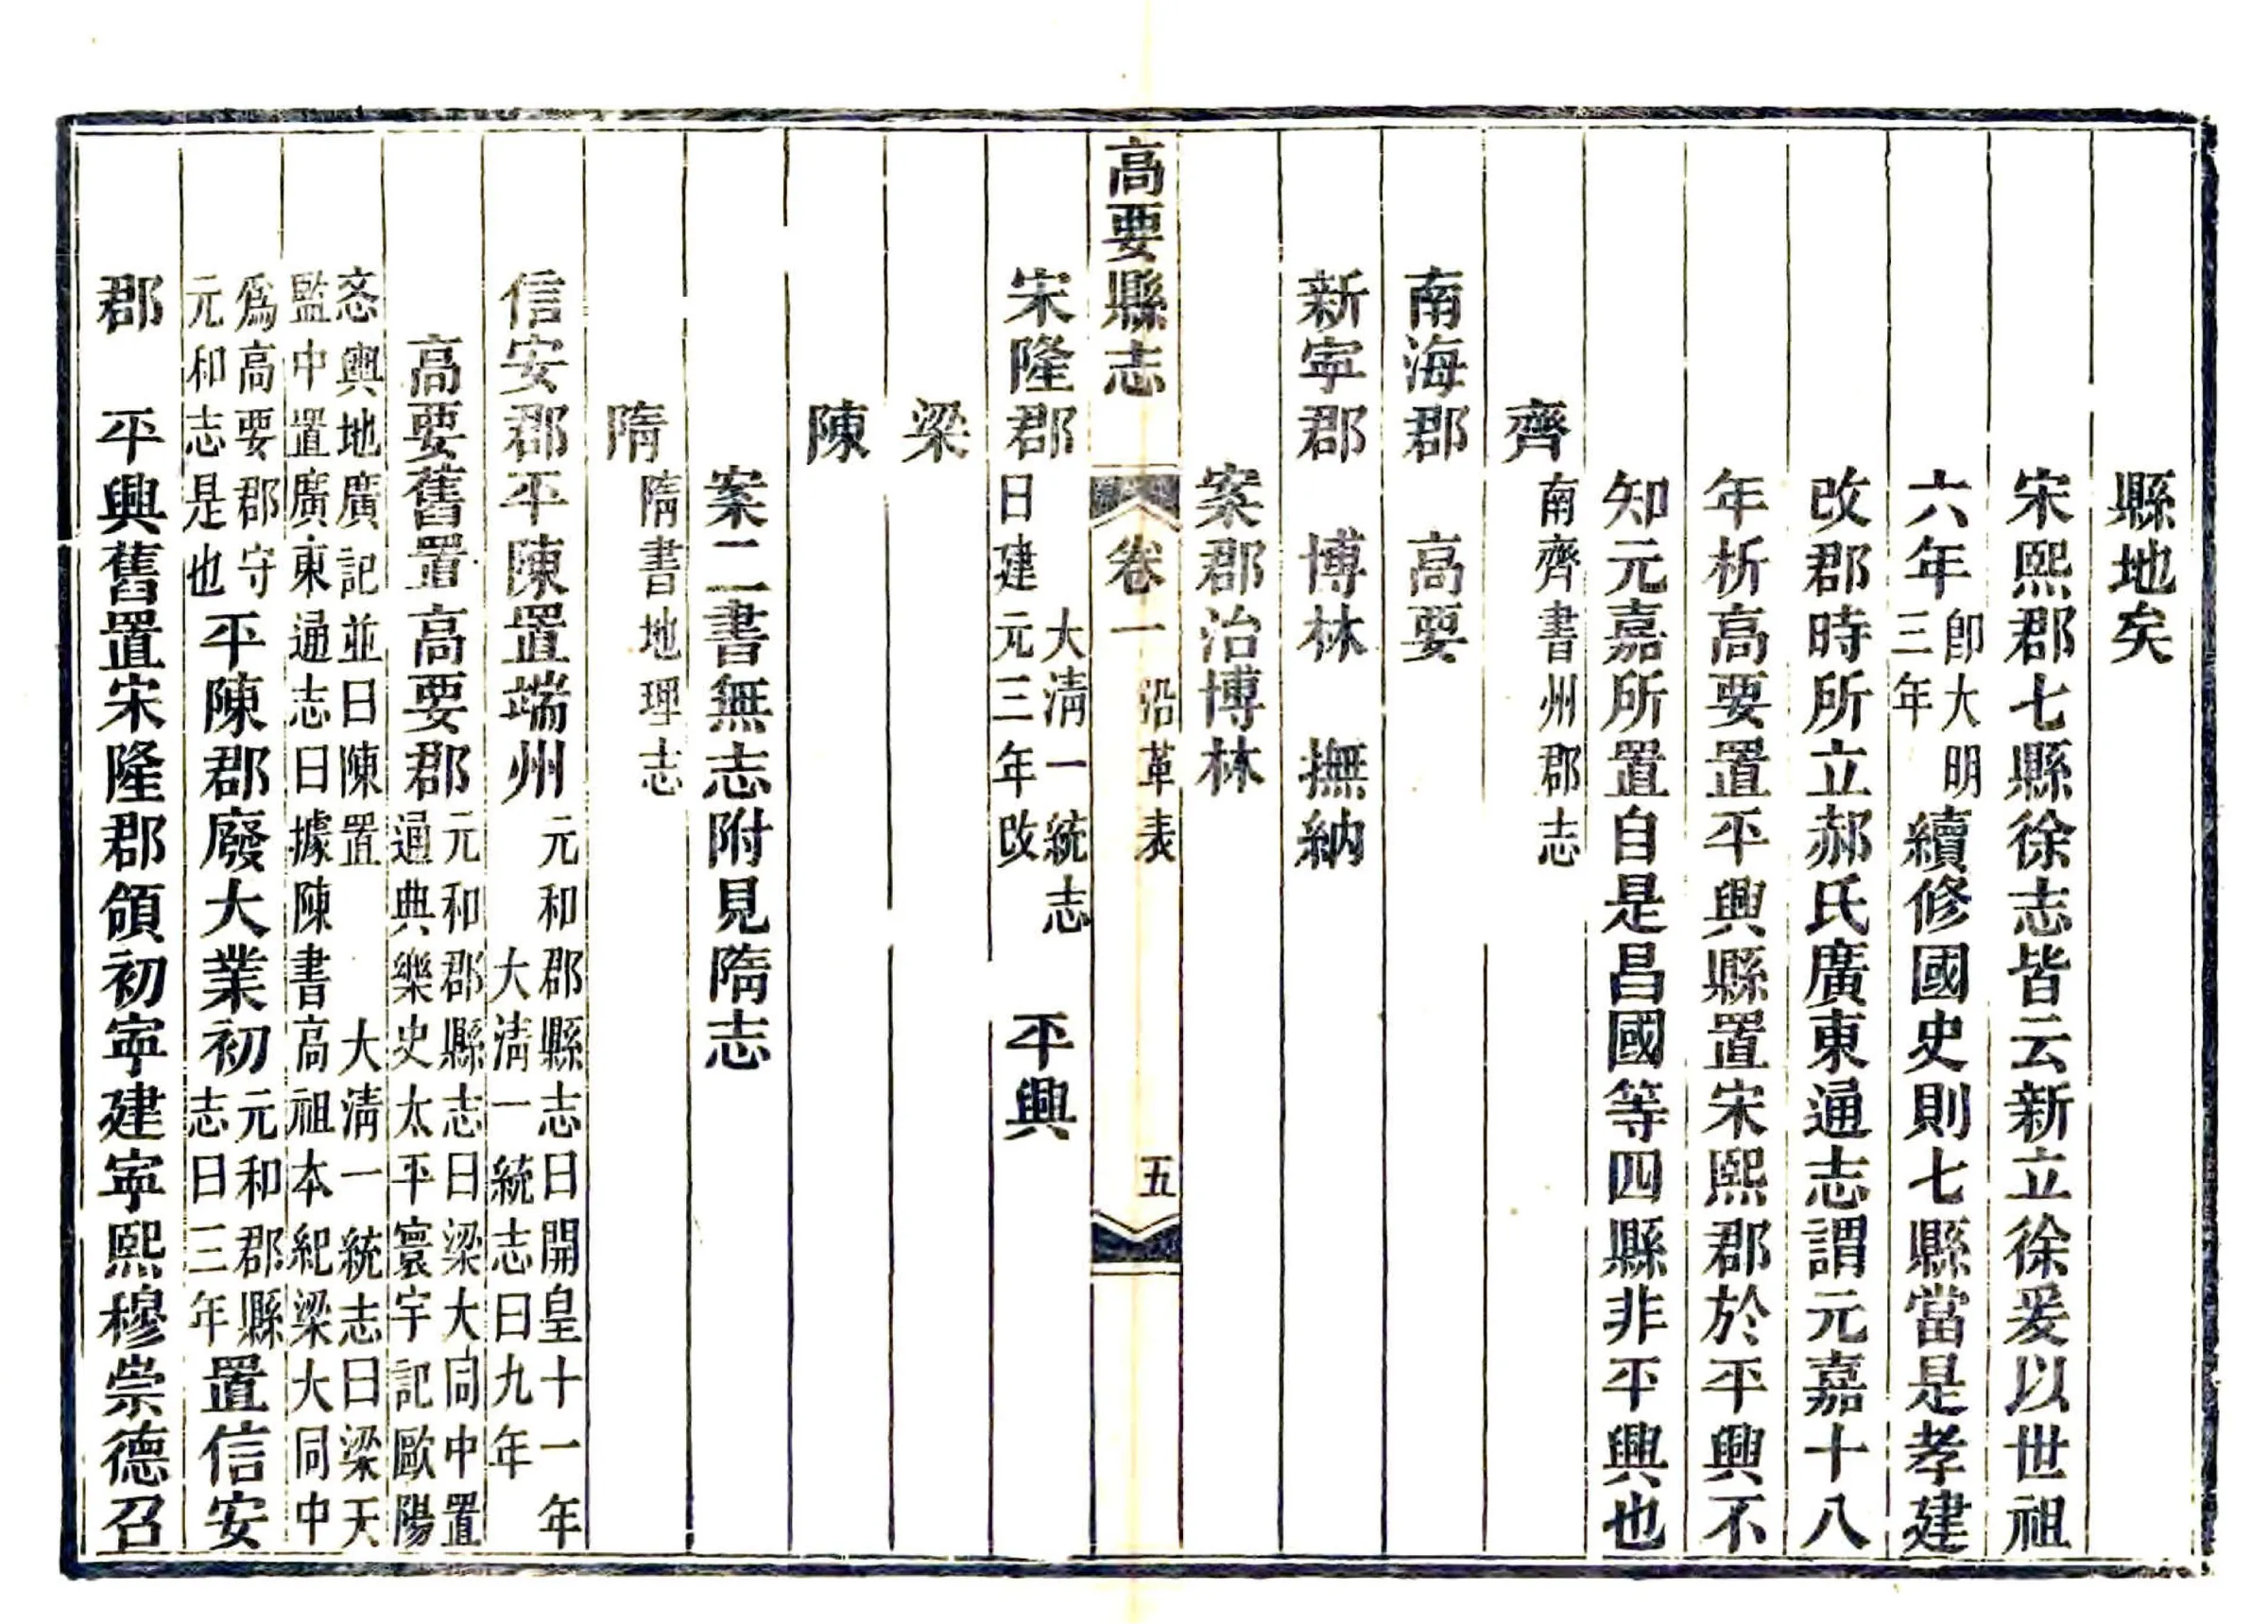 縣地矣
宋熙郡七縣徐志皆云新立徐爰以世祖
六年卽大明三年續修國史則七縣當是孝建
改郡時所立郝氏廣東通志謂元嘉十八
年析高要置平興縣置宋熙郡於平興不
知元嘉所置自是昌國等四縣非平興也
齊 南齊書州郡志
南海郡 高要
新寕郡 博林 撫納
案郡治博林
高要縣志 卷一 沿革表 五
宋隆郡 大清一統志曰建元三年改 平興
梁
陳
案二書無志附見隋志
隋 隋書地理志
信安郡平陳置端州元和郡縣志曰開皇十一年 大清一統志曰九年
高要舊置高要郡元和郡縣志曰梁大同中置通典樂史太平寰宇記歐陽
忞輿地廣記並曰陳置 大清一統志曰梁天監中置廣東通志曰據陳書高祖本紀梁大同中
爲高要郡守元和志是也平陳郡廢大業初元和郡縣志曰三年置信安
郡 平興舊置宋隆郡領初寕建寕熙穆崇德召